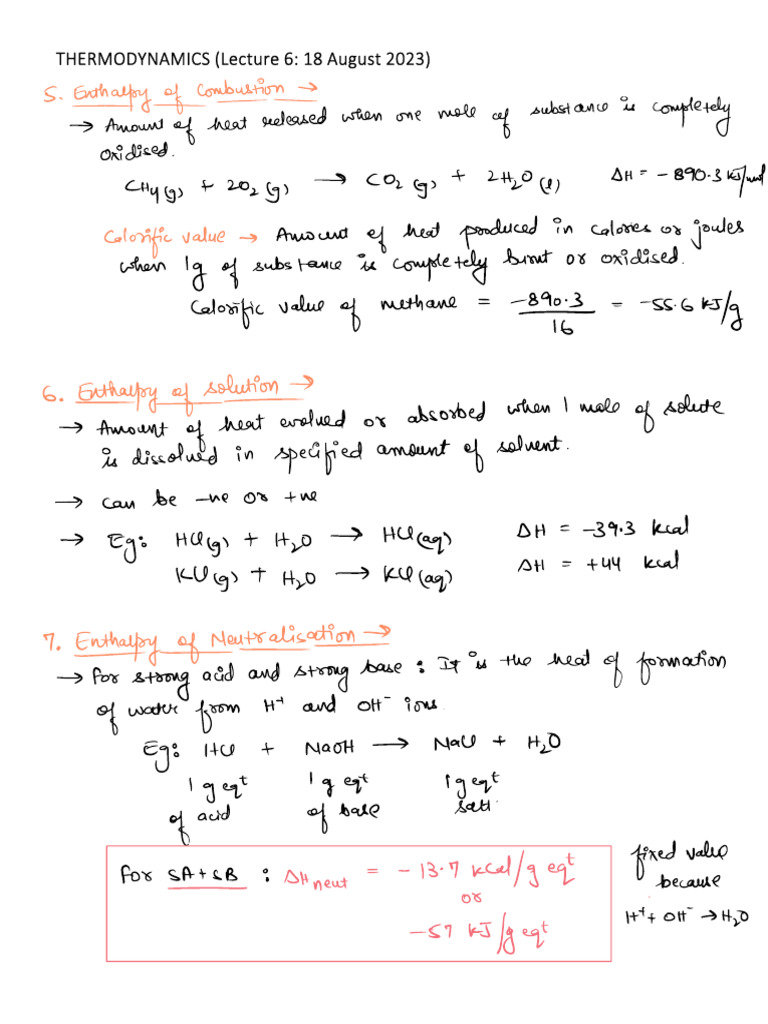 THERMODYNAMICS (Lecture 6: 18 August 2023)
5. Enthalpy of Combustion →
→ Amount of heat released when one mole of substance is completely
oxidised.
CH4(g) + 2O2(g) → CO2(g) + 2H2O(l) ΔH = -890.3 KJ/mol
Calorific value → Amount of heat produced in calores or joules
when 1g of substance is completely burnt or oxidised.
Calorific value of methane = -890.3/16 = -55.6 KJ/g
6. Enthalpy of solution →
→ Amount of heat evolved or absorbed when 1 mole of solute
is dissolved in specified amount of solvent.
→ can be -ve or +ve
→ Eg: HCl(g) + H2O → HCl(aq) ΔH = -39.3 kcal
KCl(g) + H2O → KCl(aq) ΔH = +44 kcal
7. Enthalpy of Neutralisation →
→ for strong acid and strong base : It is the heat of formation
of water from H⁺ and OH⁻ ions.
Eg: HCl + NaOH → NaCl + H2O
1 g eqt 1 g eqt 1 g eqt
of acid of base salt
for SA+SB : ΔHneut = -13.7 kcal/g eqt
or
-57 KJ/g eqt
fixed value
because
H⁺+ OH⁻ → H2O